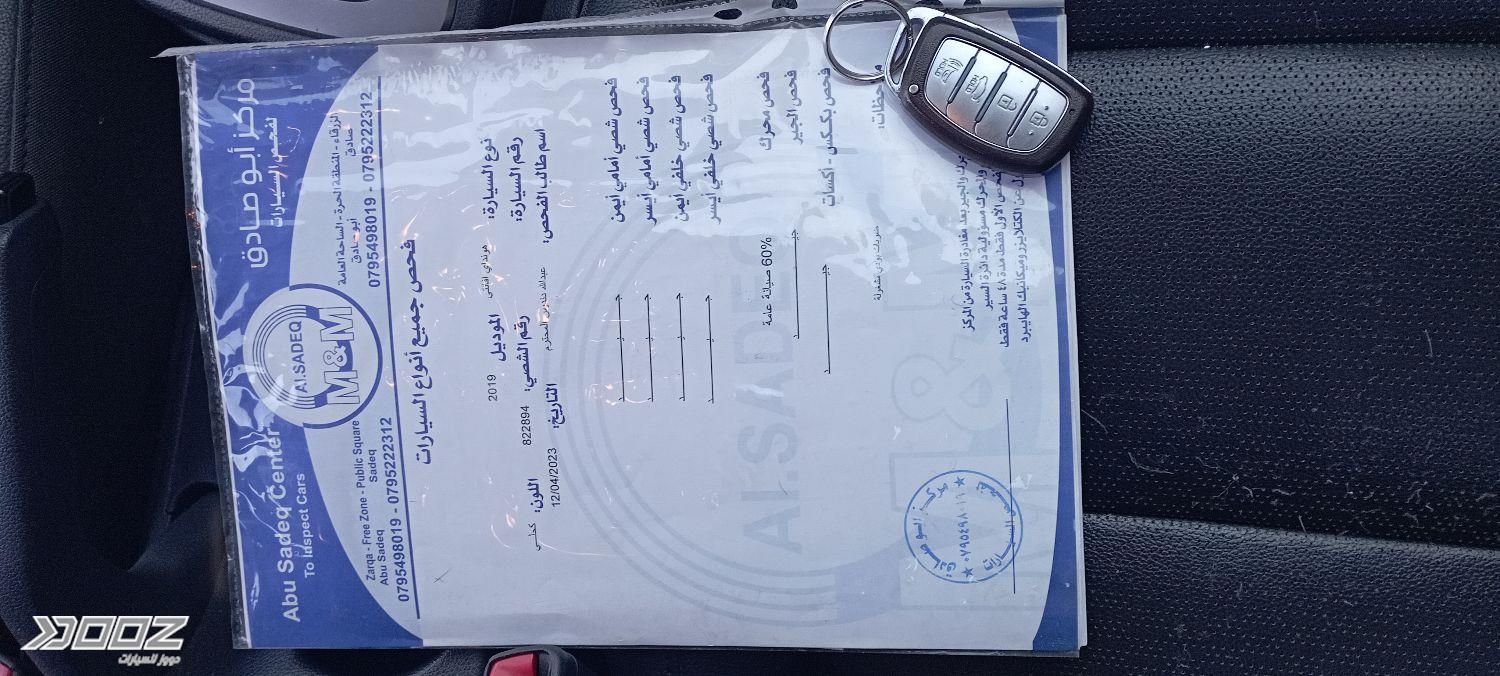 مركز أبو صادق
لفحص السيارات
الزرقاء - المنطقة الحرة - الساحة العامة
أبو صادق
صادق
0795498019 - 0795222312
AL.SADEQ
M&M
Abu Sadeq Center
To Inspect Cars
Zarqa - Free Zone - Public Square
Abu Sadeq
Sadeq
0795498019 - 0795222312
فحص جميع أنواع السيارات
نوع السيارة: هونداي افنتي
الموديل 2019
اللون: كحلي
رقم السيارة:
رقم الشصي: 822894
اسم طالب الفحص: عبدالله المحترم
التاريخ: 12/04/2023
فحص شصي أمامي أيمن جيد
فحص شصي أمامي أيسر جيد
فحص شصي خلفي أيمن جيد
فحص شصي خلفي أيسر جيد
فحص محرك 60% صيانة عامة
فحص الجير جيد
فحص بكس - أكسات جيد
ضربات بودي مشغولة
والجير بعد مغادرة السيارة من المركز
والمحرك مسؤولية دائرة السير
الفحص الأول فقط مدة ٤٨ ساعة فقط
عن الكتلايزر وميكانيك الهايبرد
مركز أبو صادق
لفحص السيارات
٠٧٩٥٤٩٨٠١٩
AL.SADEQ
M&M
DOOZ
دووز للسيارات